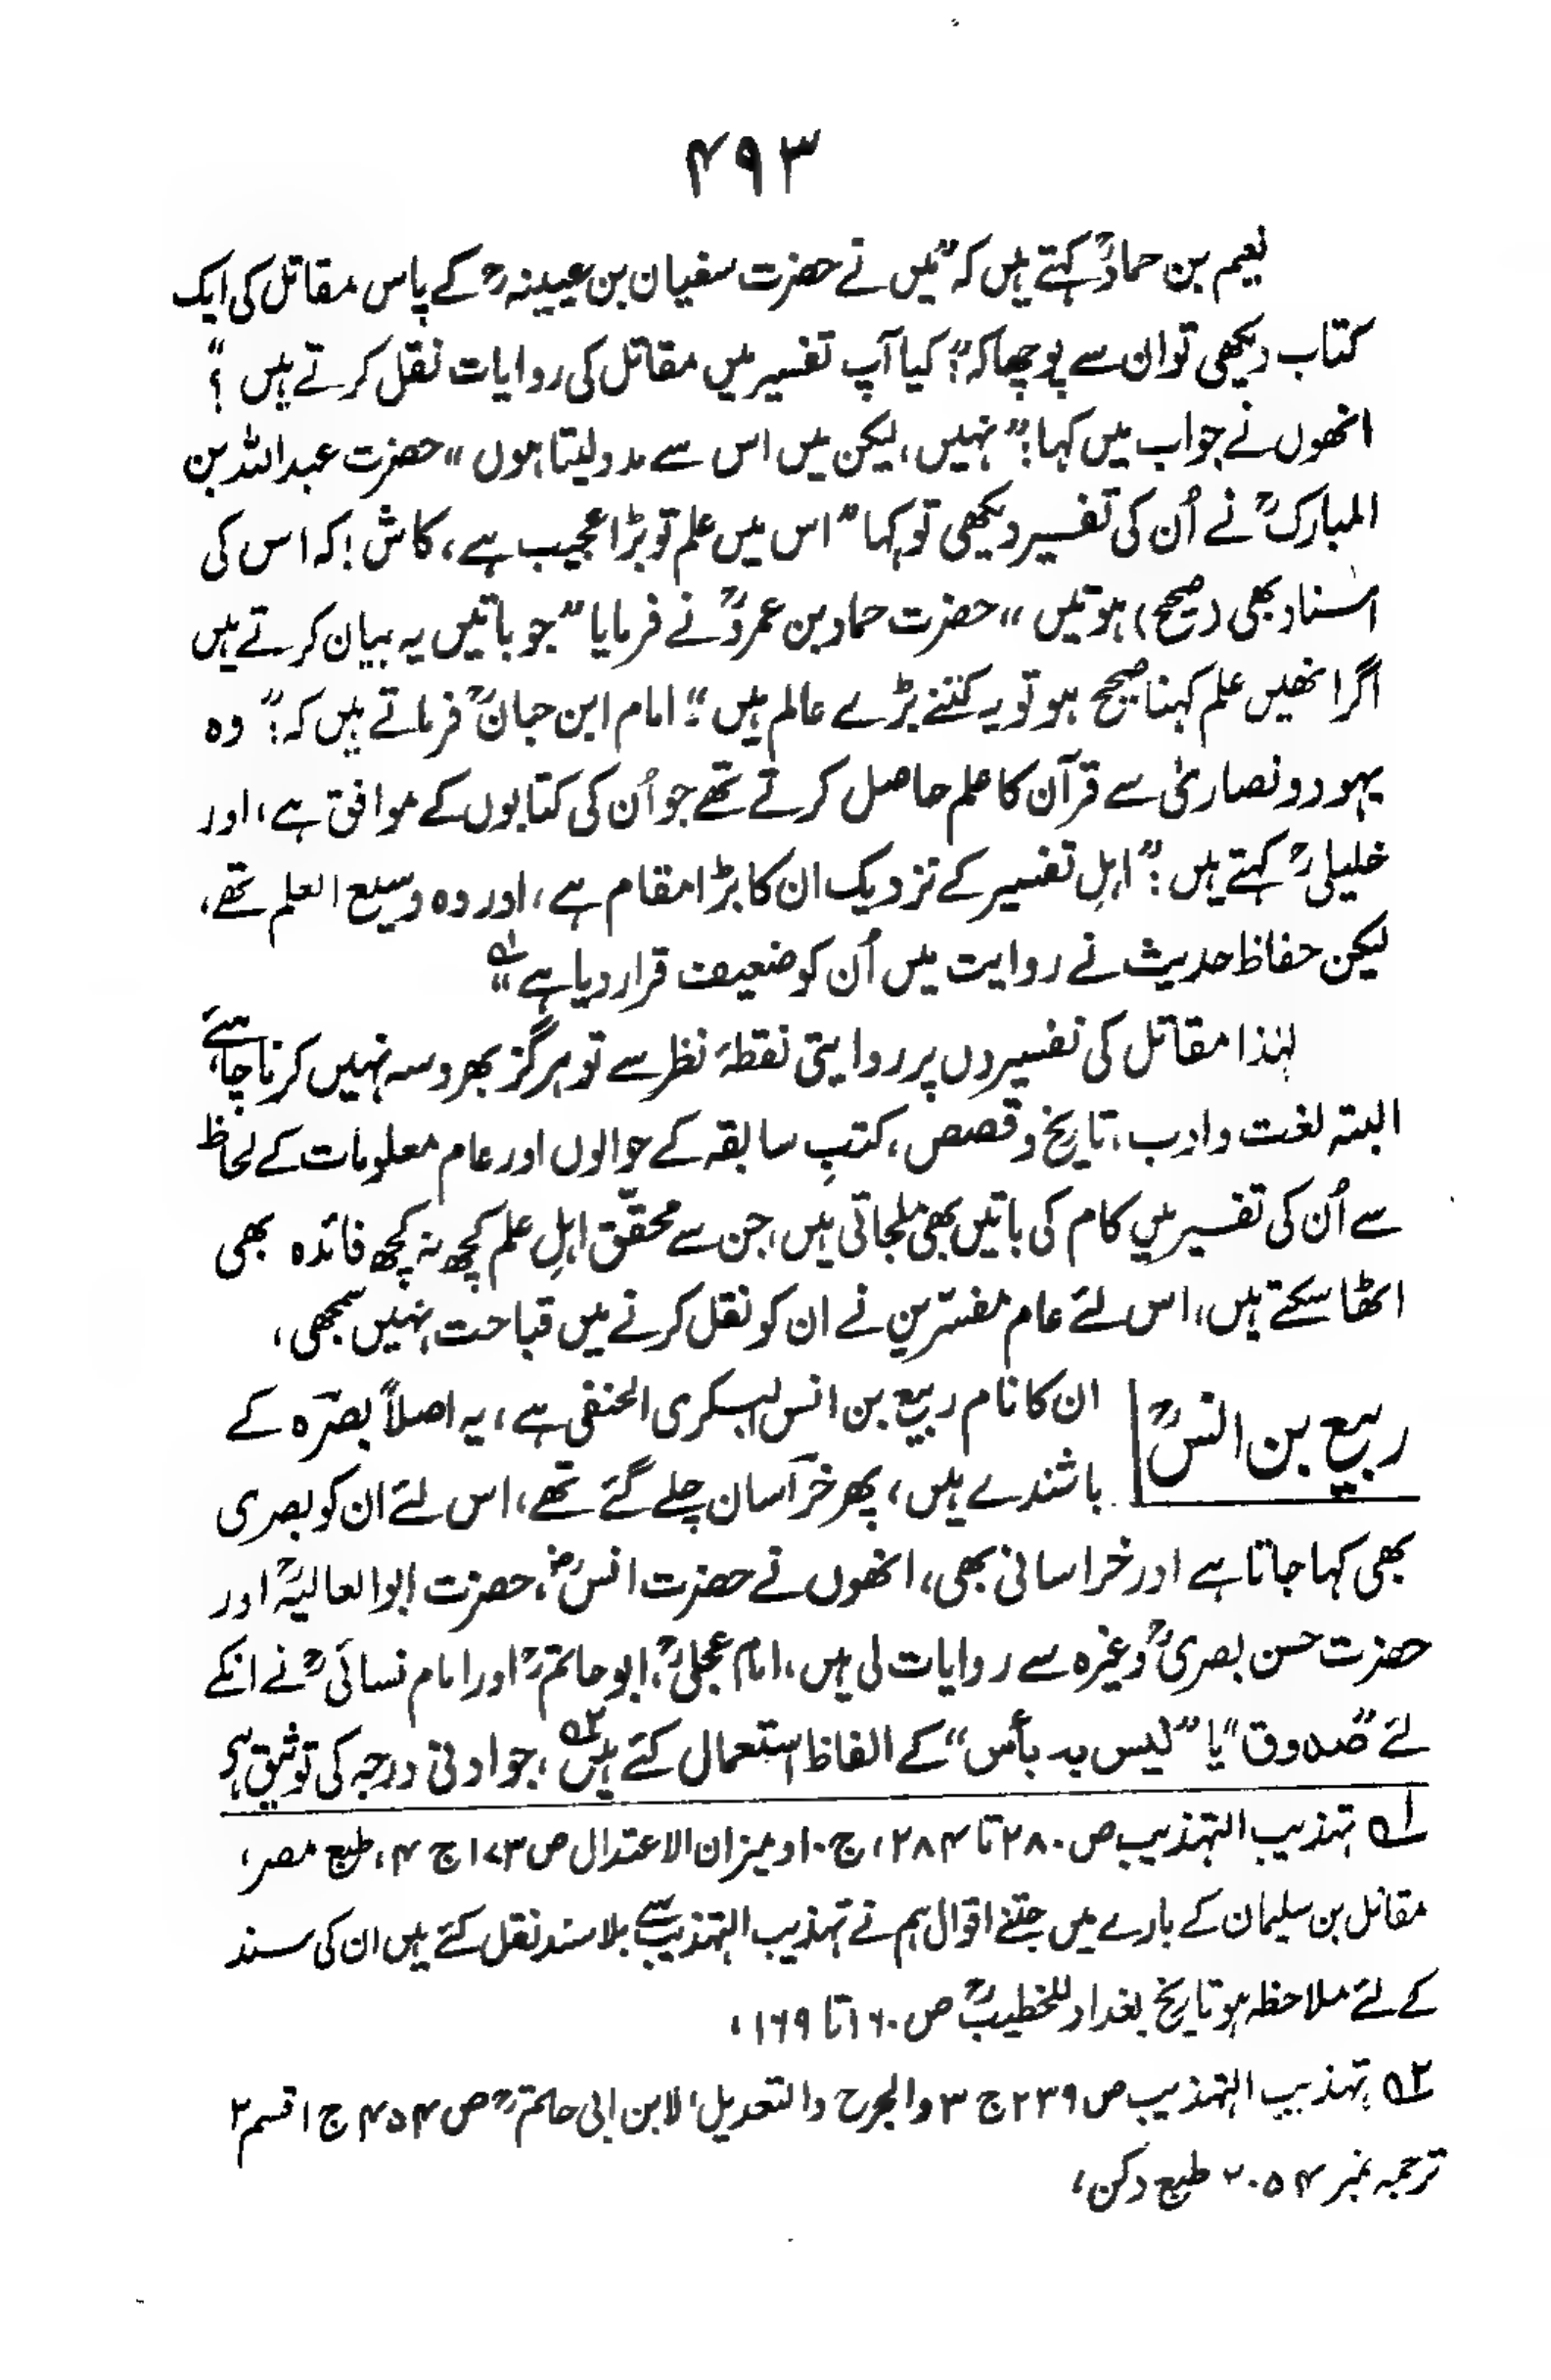 ۴۹۳
نعیم بن حمادؒ کہتے ہیں کہ "میں نے حضرت سفیان بن عیینہؒ کے پاس مقاتل کی ایک
کتاب دیکھی تو ان سے پوچھا کہ:" کیا آپ تفسیر میں مقاتل کی روایات نقل کرتے ہیں؟"
انھوں نے جواب میں کہا:" نہیں، لیکن میں اس سے مدد لیتا ہوں" حضرت عبداللہ بن
المبارکؒ نے اُن کی تفسیر دیکھی تو کہا "اس میں علم تو بڑا عجیب ہے، کاش! کہ اس کی
اسناد بھی (صحیح) ہوتیں" حضرت حماد بن عمروؒ نے فرمایا "جو باتیں یہ بیان کرتے ہیں
اگر انھیں علم کہنا صحیح ہو تو یہ کتنے بڑے عالم ہیں": امام ابن حبانؒ فرماتے ہیں کہ:" وہ
یہود و نصاریٰ سے قرآن کا علم حاصل کرتے تھے جو اُن کی کتابوں کے موافق ہے، اور
خلیلیؒ کہتے ہیں:" اہلِ تفسیر کے نزدیک ان کا بڑا مقام ہے، اور وہ وسیع العلم تھے،
لیکن حفاظ حدیث نے روایت میں اُن کو ضعیف قرار دیا ہے" ؎۱
لہٰذا مقاتل کی تفسیروں پر روایتی نقطۂ نظر سے تو ہرگز بھروسہ نہیں کرنا چاہئے،
البتہ لغت و ادب، تاریخ و قصص، کتبِ سابقہ کے حوالوں اور عام معلومات کے لحاظ
سے اُن کی تفسیر میں کام کی باتیں بھی ملجاتی ہیں، جن سے محقّق اہلِ علم کچھ نہ کچھ فائدہ بھی
اٹھا سکتے ہیں، اس لئے عام مفسّرین نے ان کو نقل کرنے میں قباحت نہیں سمجھی،
ربیع بن انسؒ ان کا نام ربیع بن انس البکری الحنفی ہے، یہ اصلاً بصرہ کے
باشندے ہیں، پھر خراسان چلے گئے تھے، اس لئے ان کو بصری
بھی کہا جاتا ہے اور خراسانی بھی، انھوں نے حضرت انسؓ، حضرت ابوالعالیہؒ اور
حضرت حسن بصریؒ وغیرہ سے روایات لی ہیں، امام عجلیؒ، ابو حاتمؒ اور امام نسائیؒ نے انکے
لئے "صدوق" یا "لیس بہ بأس" کے الفاظ استعمال کئے ہیں ؎۲، جو ادنیٰ درجہ کی توثیق ہے
؎۱ تہذیب التہذیب ص ۲۸۰ تا ۲۸۴، ج ۱۰ و میزان الاعتدال ص ۱۷۳ ج ۴، طبع مصر،
مقاتل بن سلیمان کے بارے میں جتنے اقوال ہم نے تہذیب التہذیب سے بلا سند نقل کئے ہیں ان کی سند
کے لئے ملاحظہ ہو تاریخ بغداد للخطیبؒ ص ۱۶۰ تا ۱۶۹،
؎۲ تہذیب التہذیب ص ۲۳۹ ج ۳ والجرح والتعدیل، لابن ابی حاتمؒ ص ۴۵۴ ج ۱ قسم ۲
ترجمہ نمبر ۲۰۵۴ طبع دکن،